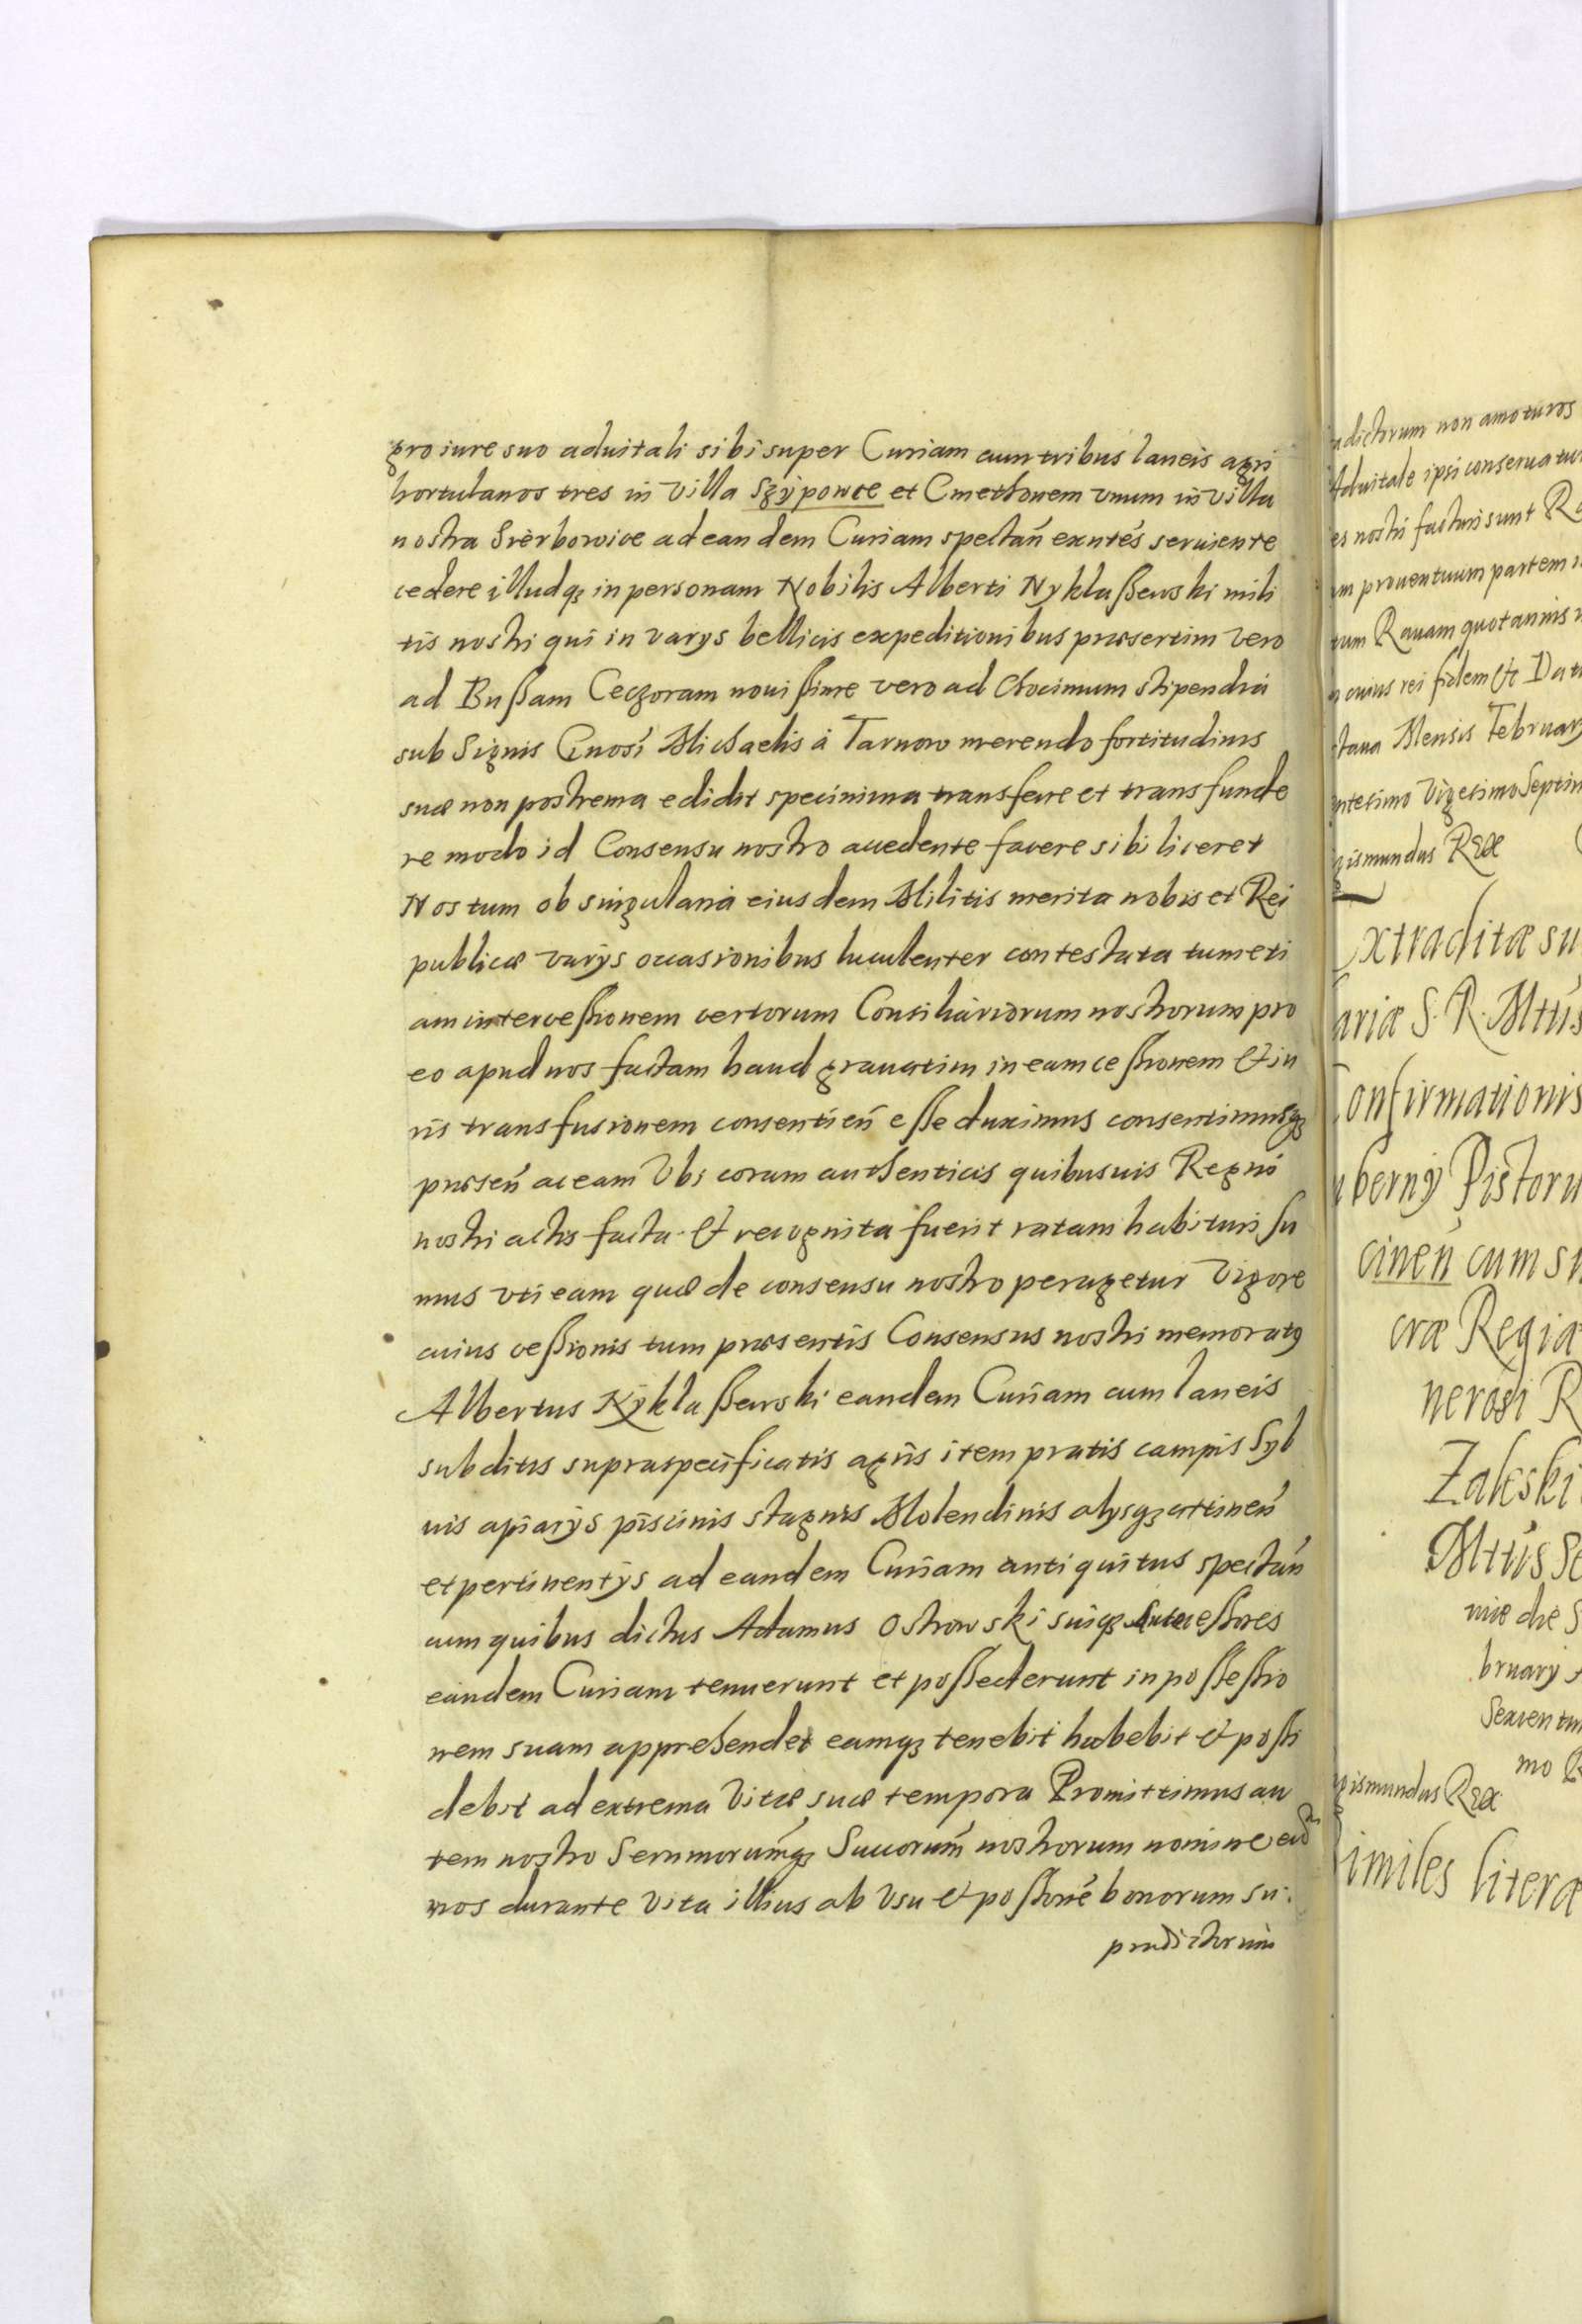 gro iure suo aduitali sibi super Curiam cum tribus laneis agri
hortulanos tres in Villa Szÿpowce et Cmethonem vnum in villa
nostra Srèrbowice ad eandem Curiam spectań exntés seruiente
cedere illudqȝ in personam Nobilis Alberti Nyklaßewski mili
tis nostri qui in varys bellicis expeditionibus præsertim vero
ad Bußam Ceczoram nouißime vero ad Chocimum stipendia
sub Signis Gnosi Michaelis á Tarnow merendo fortitudinis
suæ non postrema edidit specimina transferre et transfunde
re modo id Consensu nostro accedente facere sibi liceret
Nos tum ob singularia eiusdem Militis merita nobis et Rei
publicæ varÿs occasionibus luculenter contestata tum eti
am intercessionem certorum Consiliariorum nostrorum pro
eo apud nos factam haud grauatim in eam cessionem & iu
ris transfusionem consentień esse duximus consentimusqȝ
præseń ac eam Vbi coram authenticis quibusuis Regni
nostri actis facta & recognita fuerit ratam habituri su
mus vti eam quæ de consensu nostro peragetur Vigore
cuius cessionis tum præsentis Consensus nostri memoratg
Albertus Nÿklaßewski eandem Curiam cum laneis
subditis supraspecificatis agris item pratis campis Syl
uis apiarÿs piscinis stagnis Molendinis alysqȝ attineń
et pertinentÿs ad eandem Curiam antiquitus spectań
cum quibus dictus Adamus Ostrowski suiqȝ Antecessores
eandem Curiam tenuerunt et possederunt in possessio
nem suam apprehendet eamqȝ tenebit habebit & possi
debit ad extrema Vitæ suæ tempora Promittimus au
tem nostro Sernmorumqȝ Succorum nostrorum nomine eud
nos durante Vita illius ab Vsu & possioné bonorum su.
prædictorum
adictorum non amoturos
Aduitale ipsi conseruatur
es nostri facturi sunt
m prouentuum partem
tum Rauam quotannis
cuius rei fidem & Dat
taua Mensis February
ntesimo Vigesimo Septim
gismundus Rex
xtraditæ su
ariæ S. R. Mtis
onfirmationis
berny Pistoru
cineń cum s
cræ Regiæ
nerosi R
Zaleski
Mtis Se
nie die S
bruary
Sexcentu
mo
gismundus Rex
imiles literæ